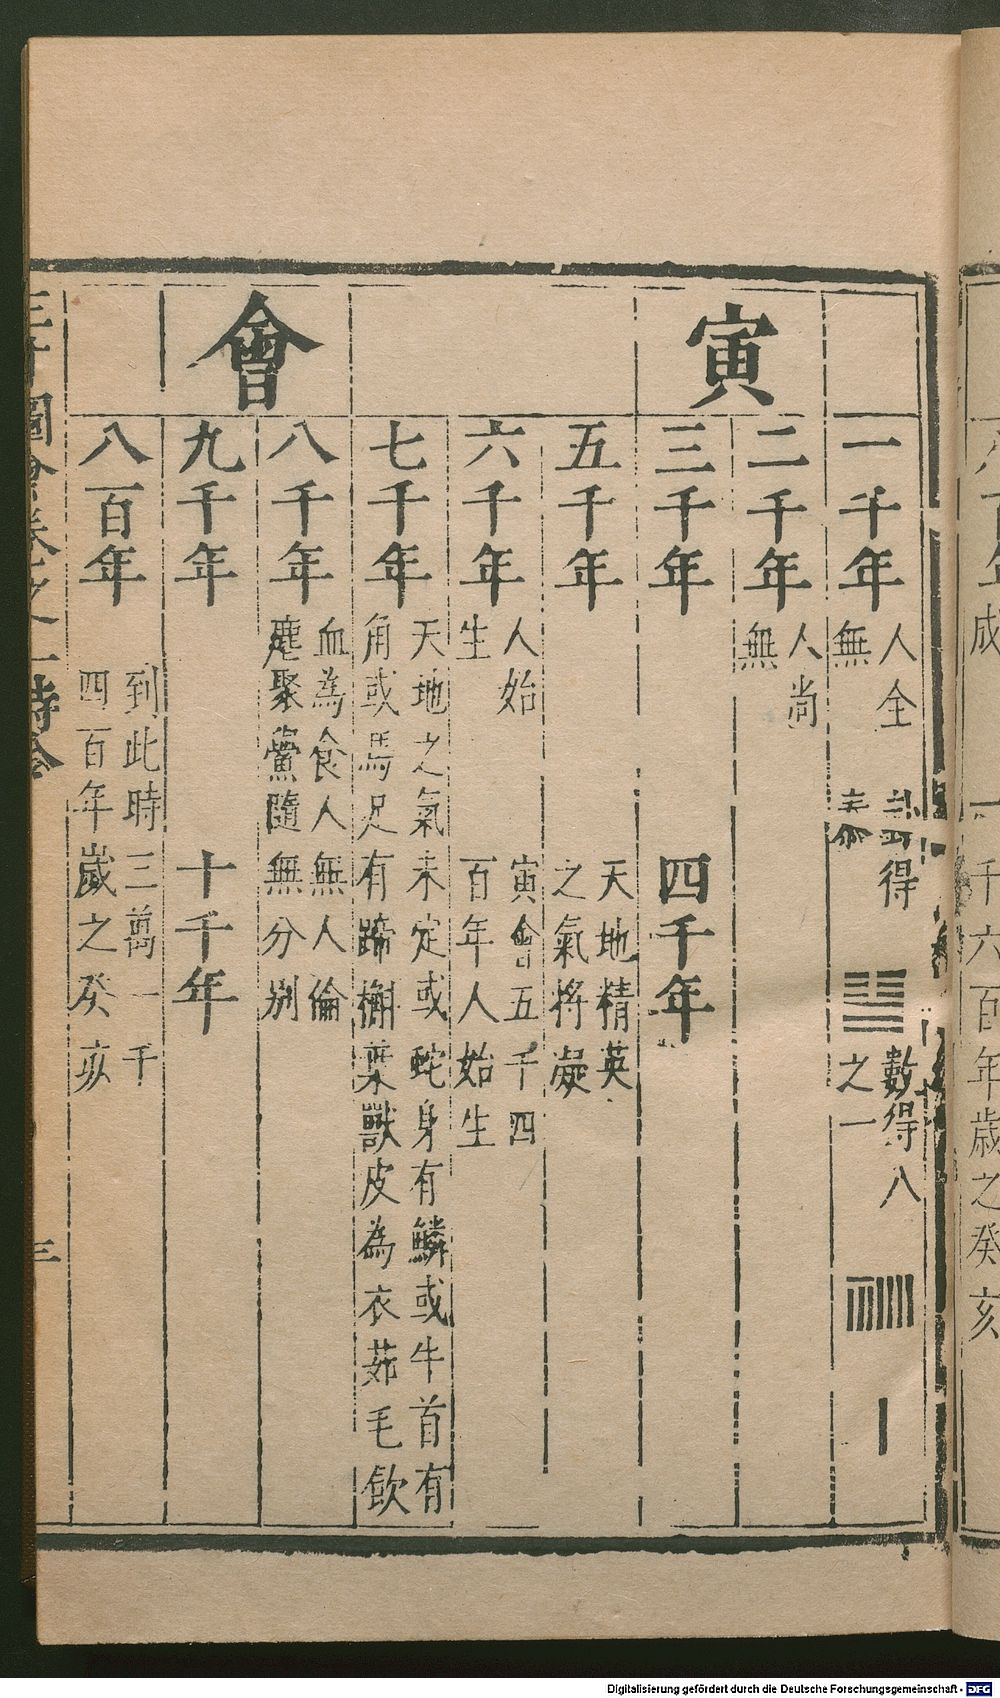 寅
會
一千年
人全
無
卦得
泰
數得八
之一
二千年
人尚
無
三千年
四千年
五千年
天地精英
之氣將凝
六千年
人始
生
寅會五千四
百年人始生
七千年
天地之氣未定或蛇身有鱗或牛首有
角或馬足有蹄槲葉獸皮為衣茹毛飲
八千年
血為食人無人倫
麀聚黨隨無分別
九千年
十千年
八百年
到此時三萬一千
四百年歲之癸亥
三才圖會卷之一時令
三
六百年成
一千六百年歲之癸亥
Digitalisierung gefördert durch die Deutsche Forschungsgemeinschaft - DFG